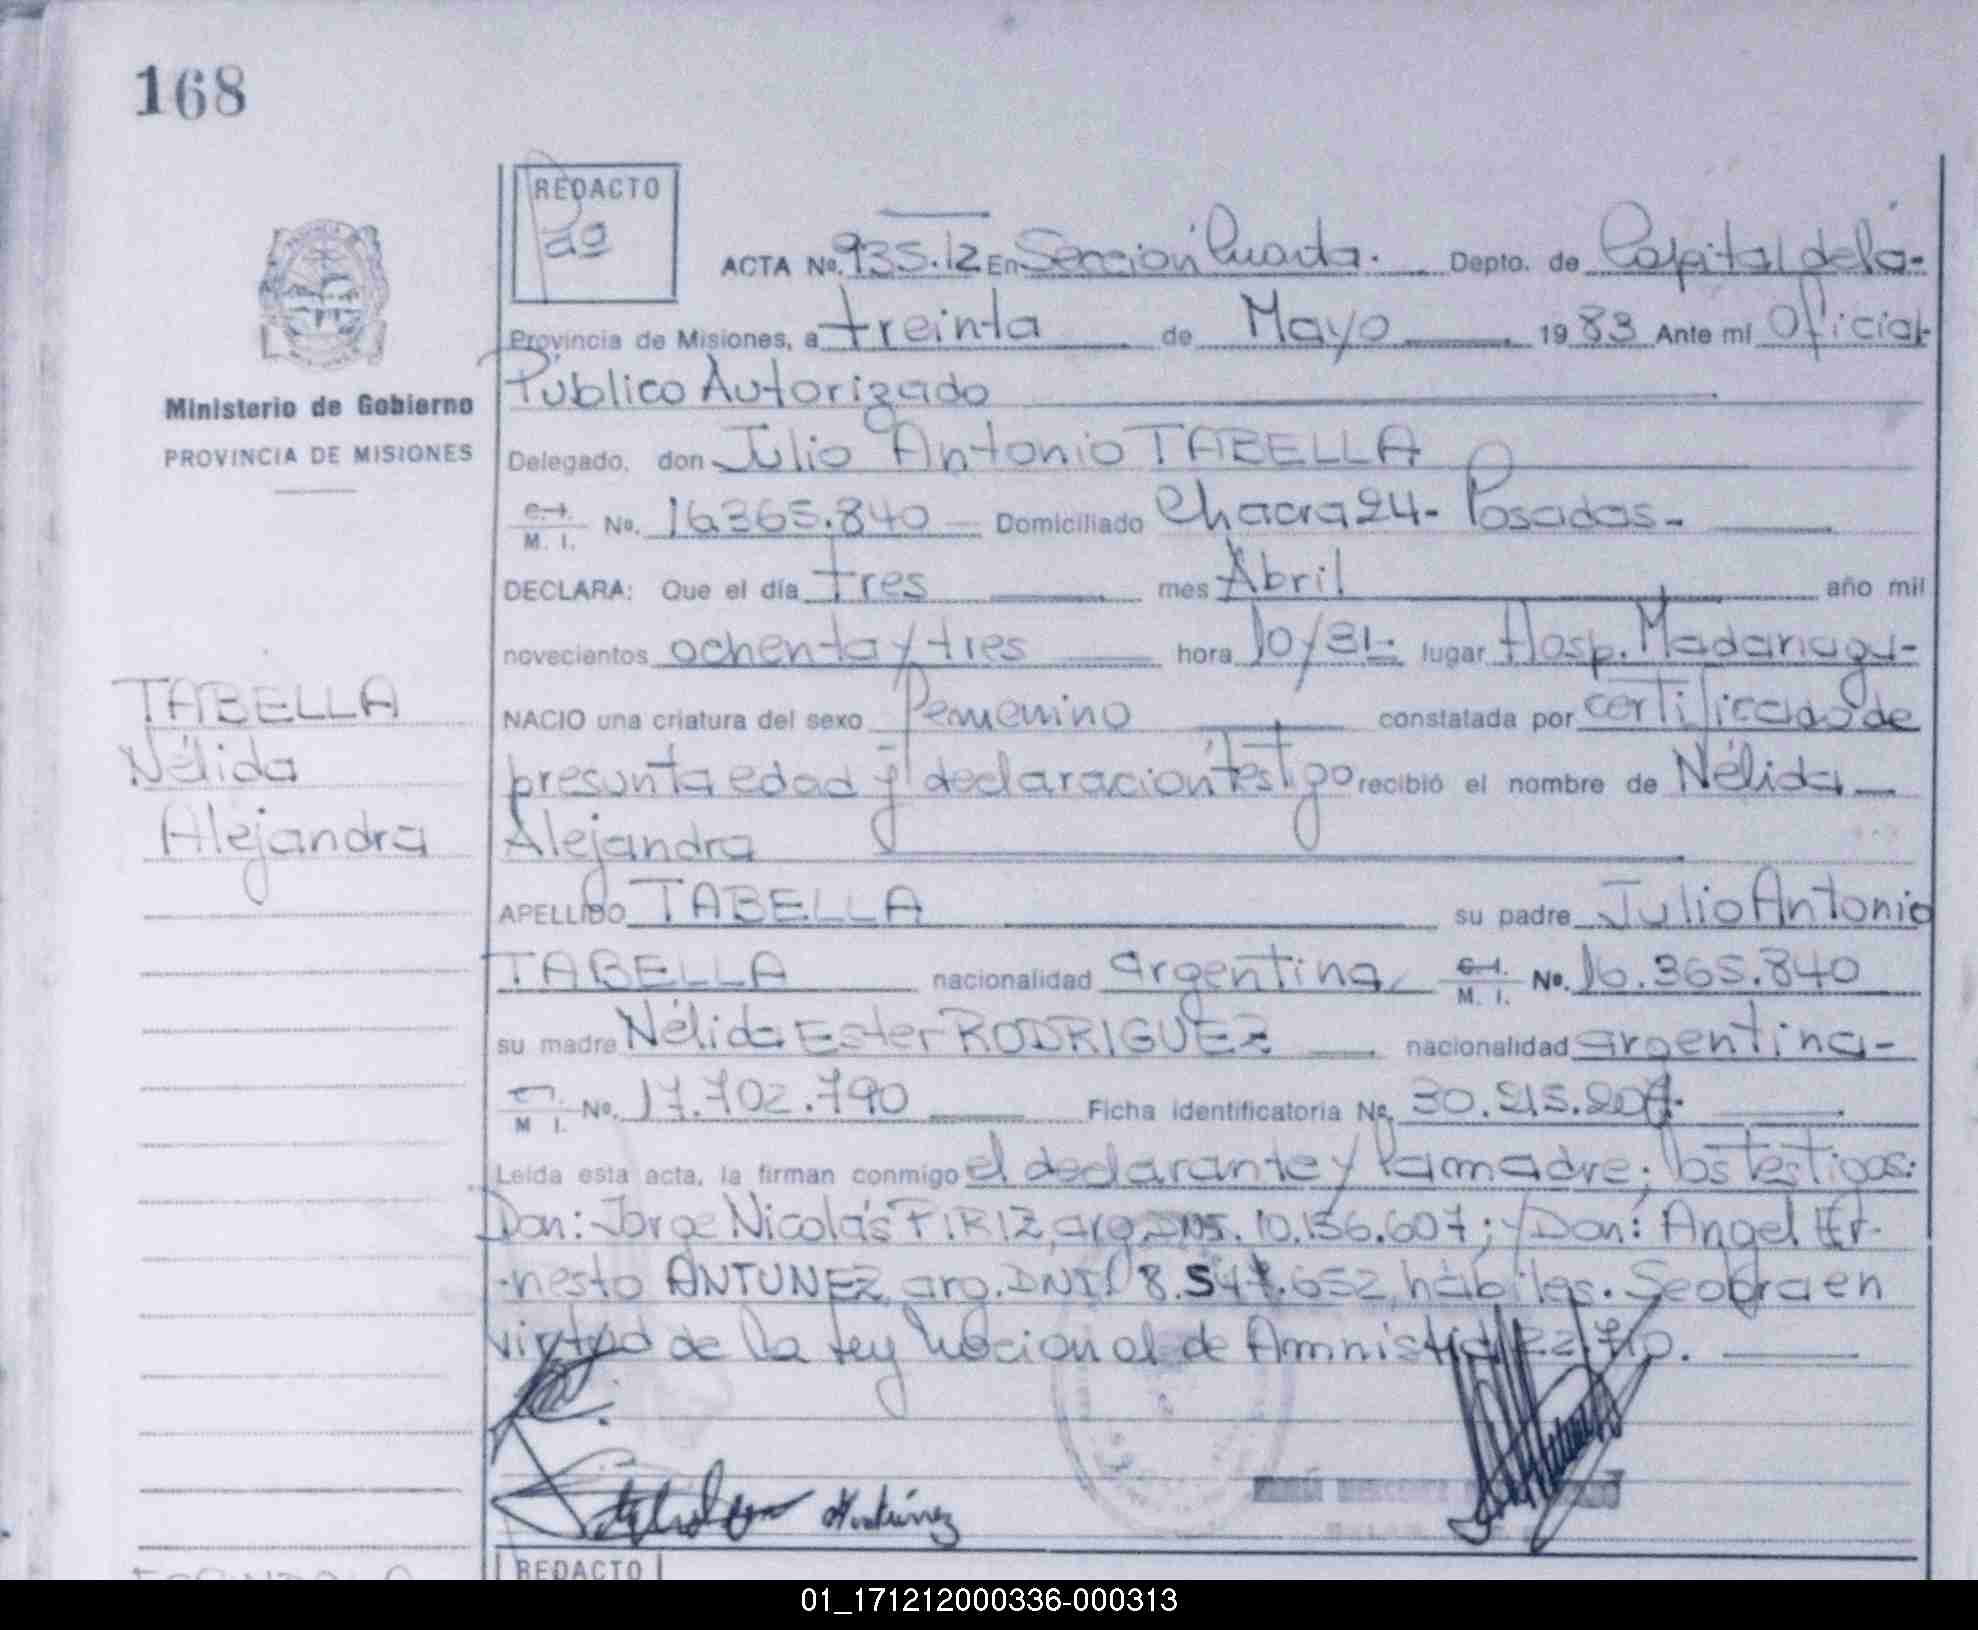 168
REDACTO
ACTA Nº. 935.12 En Sección Cuarta. Depto. de Capital de la-
Provincia de Misiones, a treinta de Mayo 1983 Ante mí Oficial
Público Autorizado
Ministerio de Gobierno
PROVINCIA DE MISIONES
Delegado, don Julio Antonio TABELLA
M. I. No. 16.365.840 Domiciliado Chacra 24- Posadas-
DECLARA: Que el día tres mes Abril año mil
novecientos ochenta y tres hora 10/31- lugar Hosp. Madariaga-
NACIO una criatura del sexo Femenino constatada por certificado de
presunta edad y declaración testigo recibió el nombre de Nélida
Alejandra
TABELLA
Nélida
Alejandra
APELLIDO TABELLA su padre Julio Antonio
TABELLA nacionalidad argentina M. I. No. 16.365.840
su madre Nélida Ester RODRIGUEZ nacionalidad argentina-
M I. No. 17.702.790 Ficha identificatoria No.
Leída esta acta, la firman conmigo el declarante y la madre; los testigos:
Don: Jorge Nicolás PIRIZ, arg. 10.156.607; y Don: Angel Er-
-nesto ANTUNEZ, arg. DNI 8.547.652, hábiles. Se obra en
virtud de la Ley Nacional de Amnistía
REDACTO
01_171212000336-000313